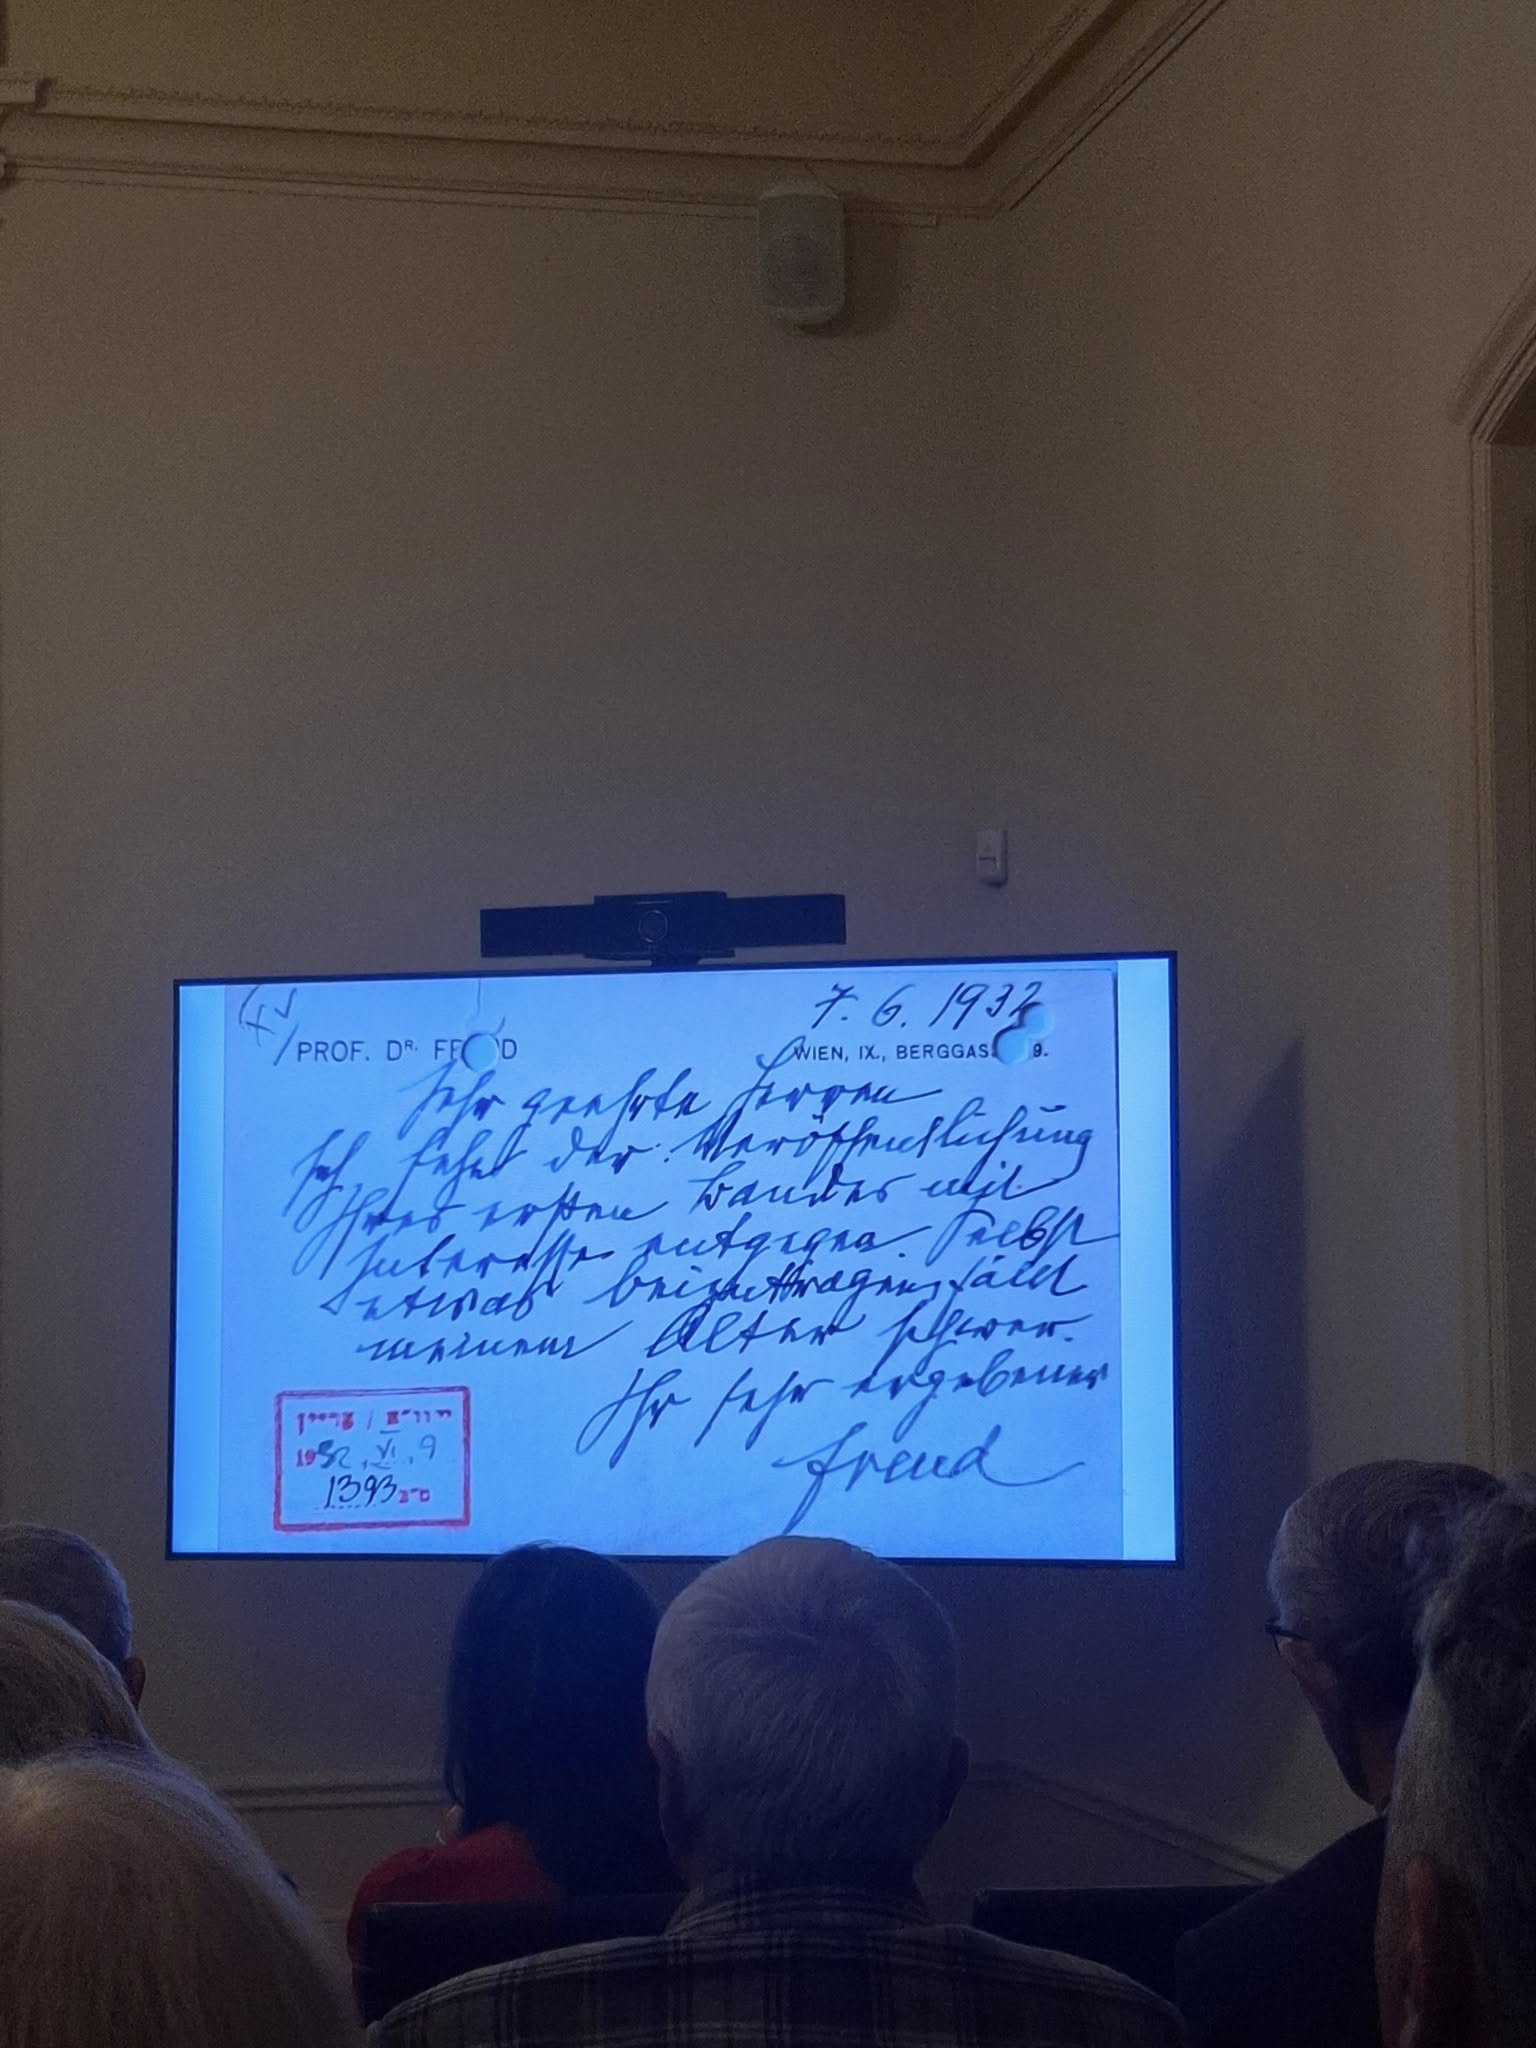 7. 6. 1932
PROF. DR. FR    D
WIEN, IX., BERGGAS    9.
Sehr geehrte Herren
Ich sehe der Veröffentlichung
Ihres ersten Bandes mit
Interesse entgegen. Selbst
etwas beizutragen, fällt
meinem Alter schwer.
Ihr sehr ergebener
Freud
1932, VI, 9
1393